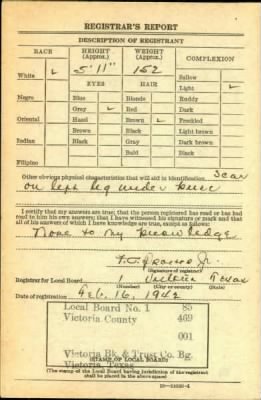 REGISTRAR'S REPORT
DESCRIPTION OF REGISTRANT
RACE HEIGHT (Approx.) WEIGHT (Approx.) COMPLEXION
5' 11" 152
White Sallow
EYES HAIR Light
Negro Blue Blonde Ruddy
Gray Red Dark
Oriental Hazel Brown Freckled
Brown Black Light brown
Indian Black Gray Dark brown
Bald Black
Filipino
Other obvious physical characteristics that will aid in identification Scar
on left leg under knee
I certify that my answers are true; that the person registered has read or has had
read to him his own answers; that I have witnessed his signature or mark and that
all of his answers of which I have knowledge are true, except as follows:
None to my knowledge
(Signature of registrar)
Registrar for Local Board 1 Victoria Texas
(Number) (City or county) (State)
Date of registration Feb. 16, 1942
Local Board No. 1 85
Victoria County 469
001
Victoria Bk & Trust Co. Bg.
Victoria, Texas
(STAMP OF LOCAL BOARD)
(The stamp of the Local Board having jurisdiction of the registrant
shall be placed in the above space.)